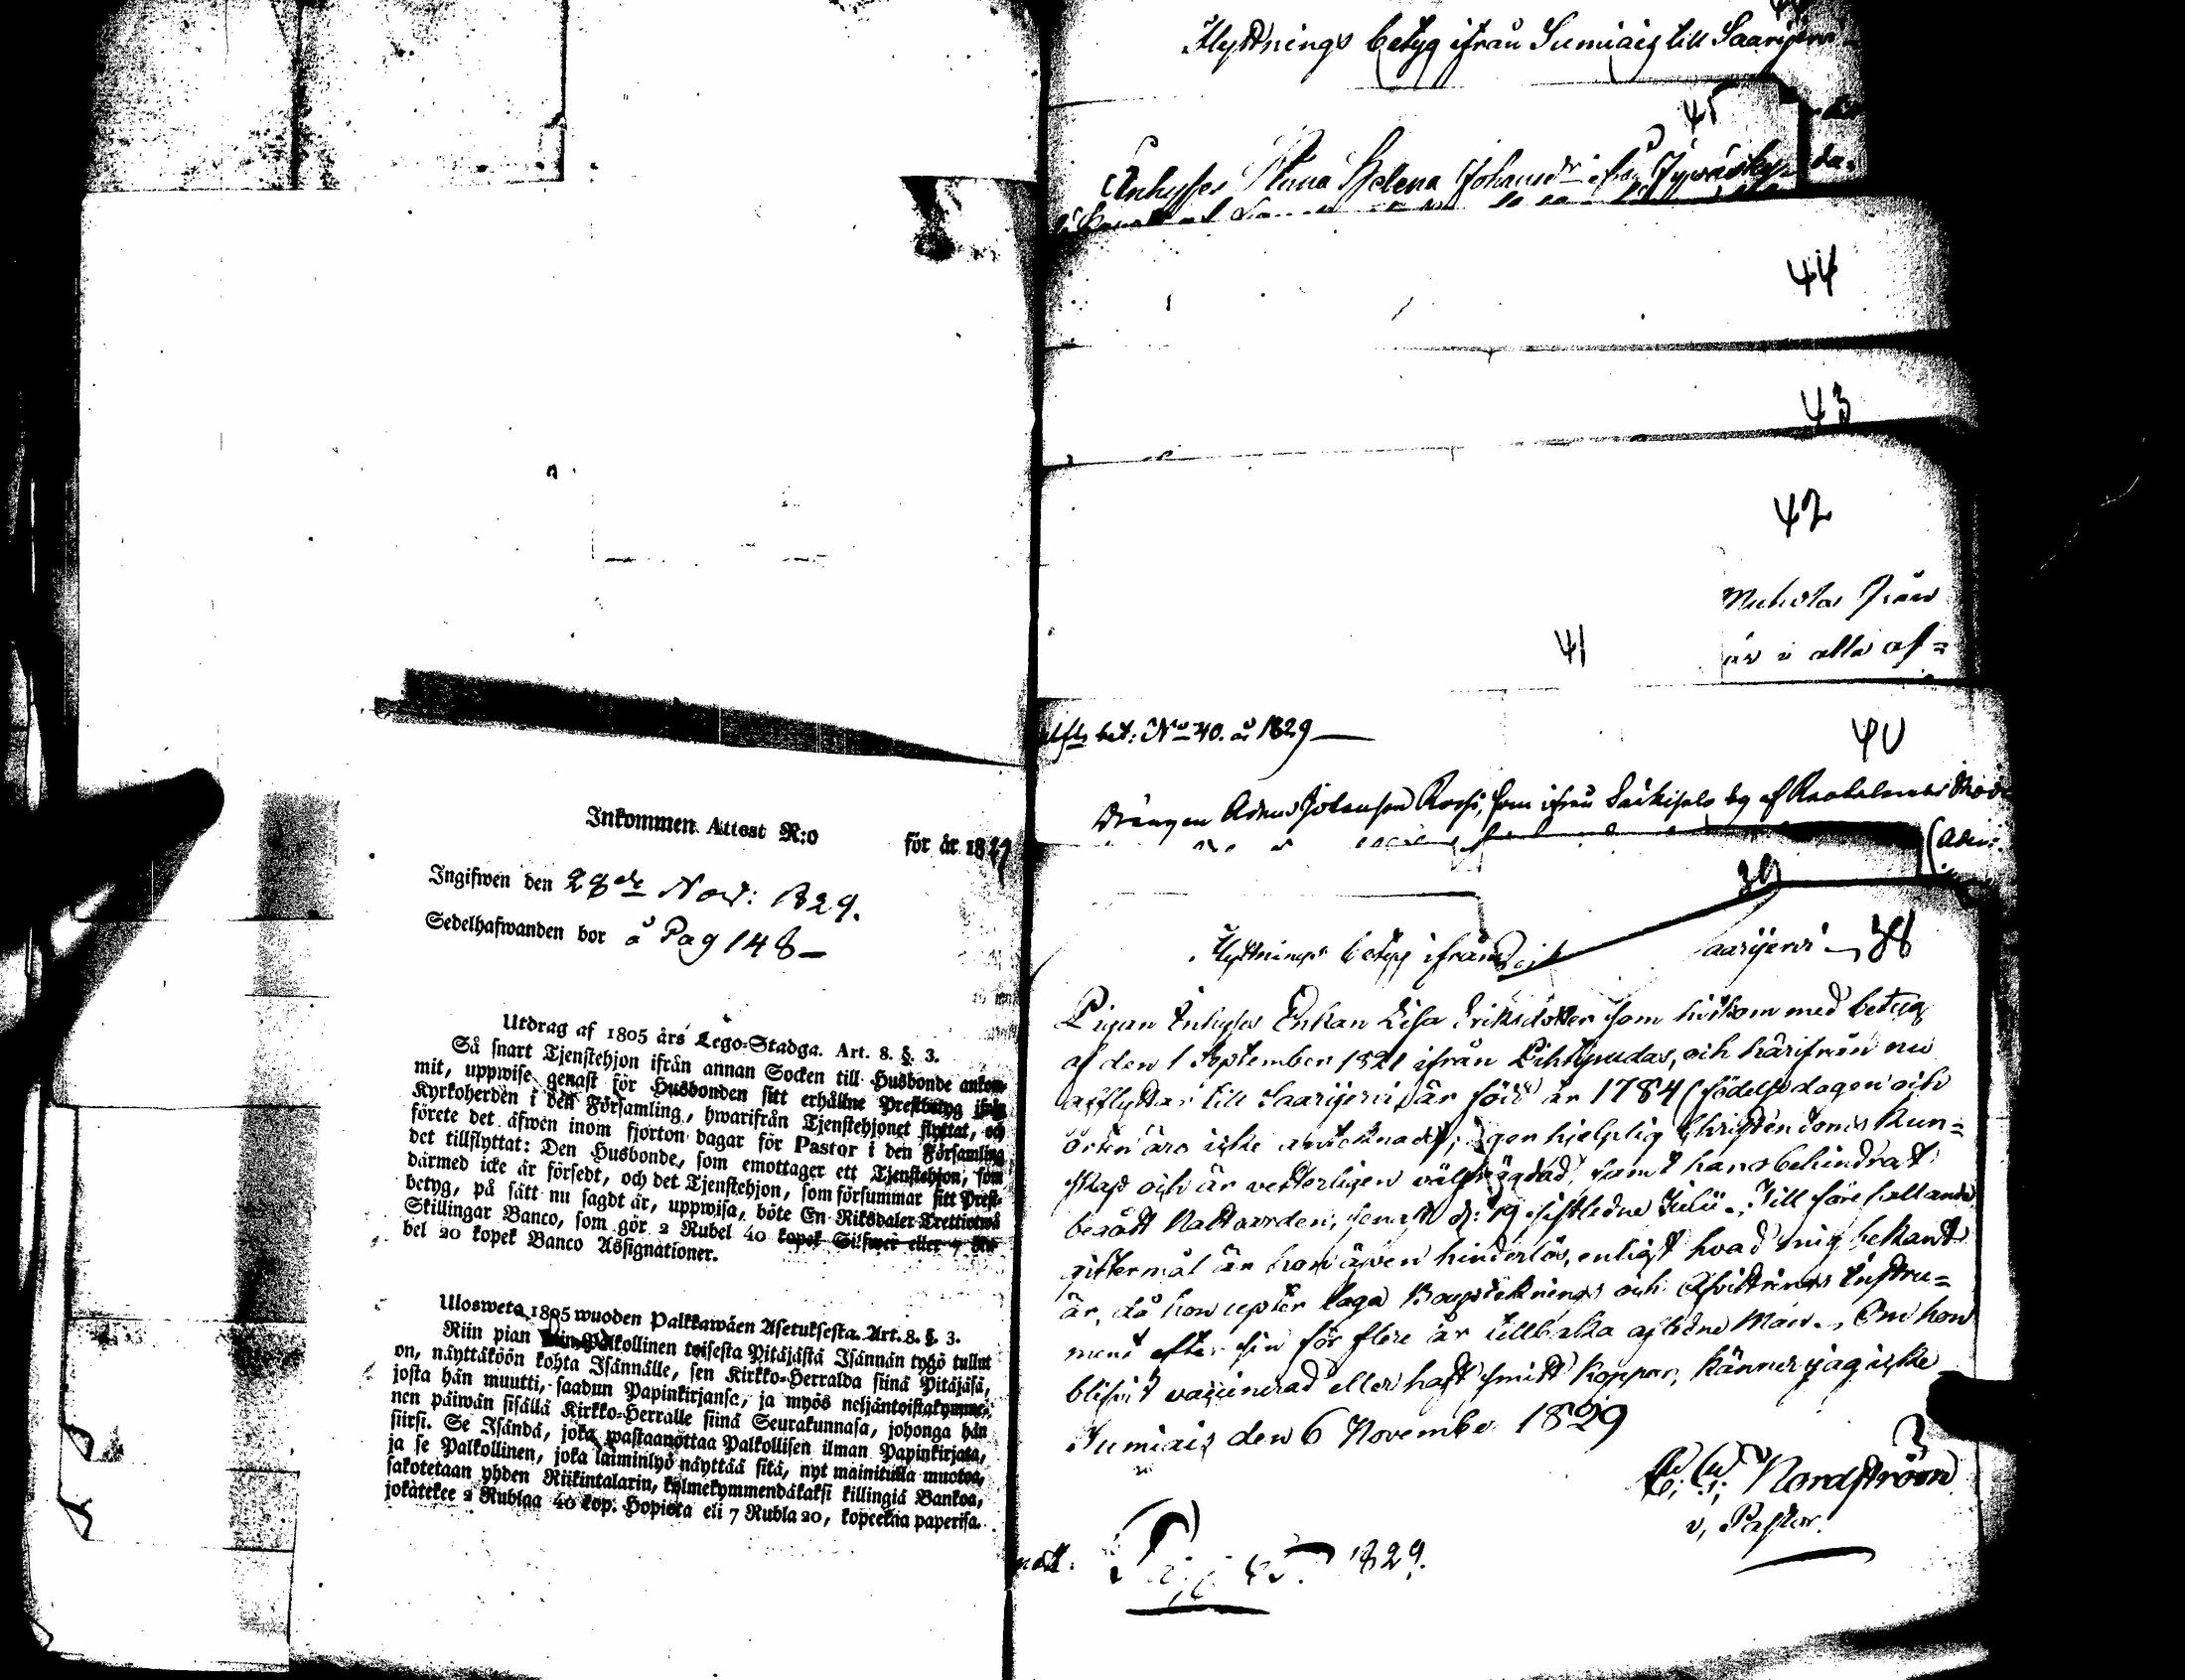 Inkommen Attest N:o för år 1829
Ingifwen den 28de Nov: 1829.
Sedelhafwanden bor å Pag 148 –
Utdrag af 1805 års Lego-Stadga. Art. 8. §. 3.
Så snart Tjenstehjon ifrån annan Socken till Husbonde ankom-
mit, uppwise genast för Husbonden sitt erhållne Prestbetyg ifrån
Kyrkoherden i den Församling, hwarifrån Tjenstehjonet flyttat, och
förete det äfwen inom fjorton dagar för Pastor i den Församling
det tillflyttat: Den Husbonde, som emottager ett Tjenstehjon, som
därmed icke är försedt, och det Tjenstehjon, som försummar sitt Prest-
betyg, på sätt nu sagdt är, uppwisa, böte En Riksdaler Trettiotwå
Skillingar Banco, som gör 2 Rubel 40 kopek Silfwer eller 7 Ru-
bel 20 kopek Banco Assignationer.
Ulosweto 1805 wuoden Palkkawäen Asetuksesta. Art. 8. §. 3.
Niin pian kuin Palkollinen toisesta Pitäjästä Isännän tygö tullut
on, näyttäköön kohta Isännälle, sen Kirkko-Herralda siinä Pitäjäsä,
josta hän muutti, saadun Papinkirjansa, ja myös neljäntoistakymme-
nen päiwän sisällä Kirkko-Herralle siinä Seurakunnasa, johonga hän
siirsi. Se Isändä, joka wastaanottaa Palkollisen ilman Papinkirjata,
ja se Palkollinen, joka laiminlyö näyttää sitä, nyt mainitulla muotoa,
sakotetaan yhden Riikintalarin, kolmekymmendäkaksi killingiä Bankoa,
jokatekee 2 Rublaa 40 kop. Hopiota eli 7 Rubla 20, kopeekaa paperisa.
Flyttnings betyg ifrån Sumiais till Saarijervi
45
Inhyses Anna Helena Johansdr ifrån Jywäskylä
44
43
42
är i alla af=
41
bet: No 40. år 1829
40
Drängen Adam Johansson
39
Flyttnings betyg ifrån
aarijervi 38
Pigan Inhyses Enkan Lisa Eriksdotter som hitkom med betyg
af den 1 September 1821 ifrån Pihtipudas, och härifrån nu
afflyttar till Saarijervi, är född år 1784 (födelsedagen och
orten äro icke antecknade), eger hjelplig Christendoms kun=
skap och är vetterligen välfrägdad, samt har obehindradt
begått Nattvarden, senast d: 19 sistledne Julii. Till förefallande
giftermål är hon äfven hinderlös, enligt hvad mig bekant
är, då hon uppter laga Boupteknings och Afvittrings Instru=
ment efter sin för flere år tillbaka afledne Man. Om hon
blifvit vaccinerad eller haft smitt koppor, känner jag icke
Sumiais den 6 November 1829
Nordström
v, Pastor.
1829.